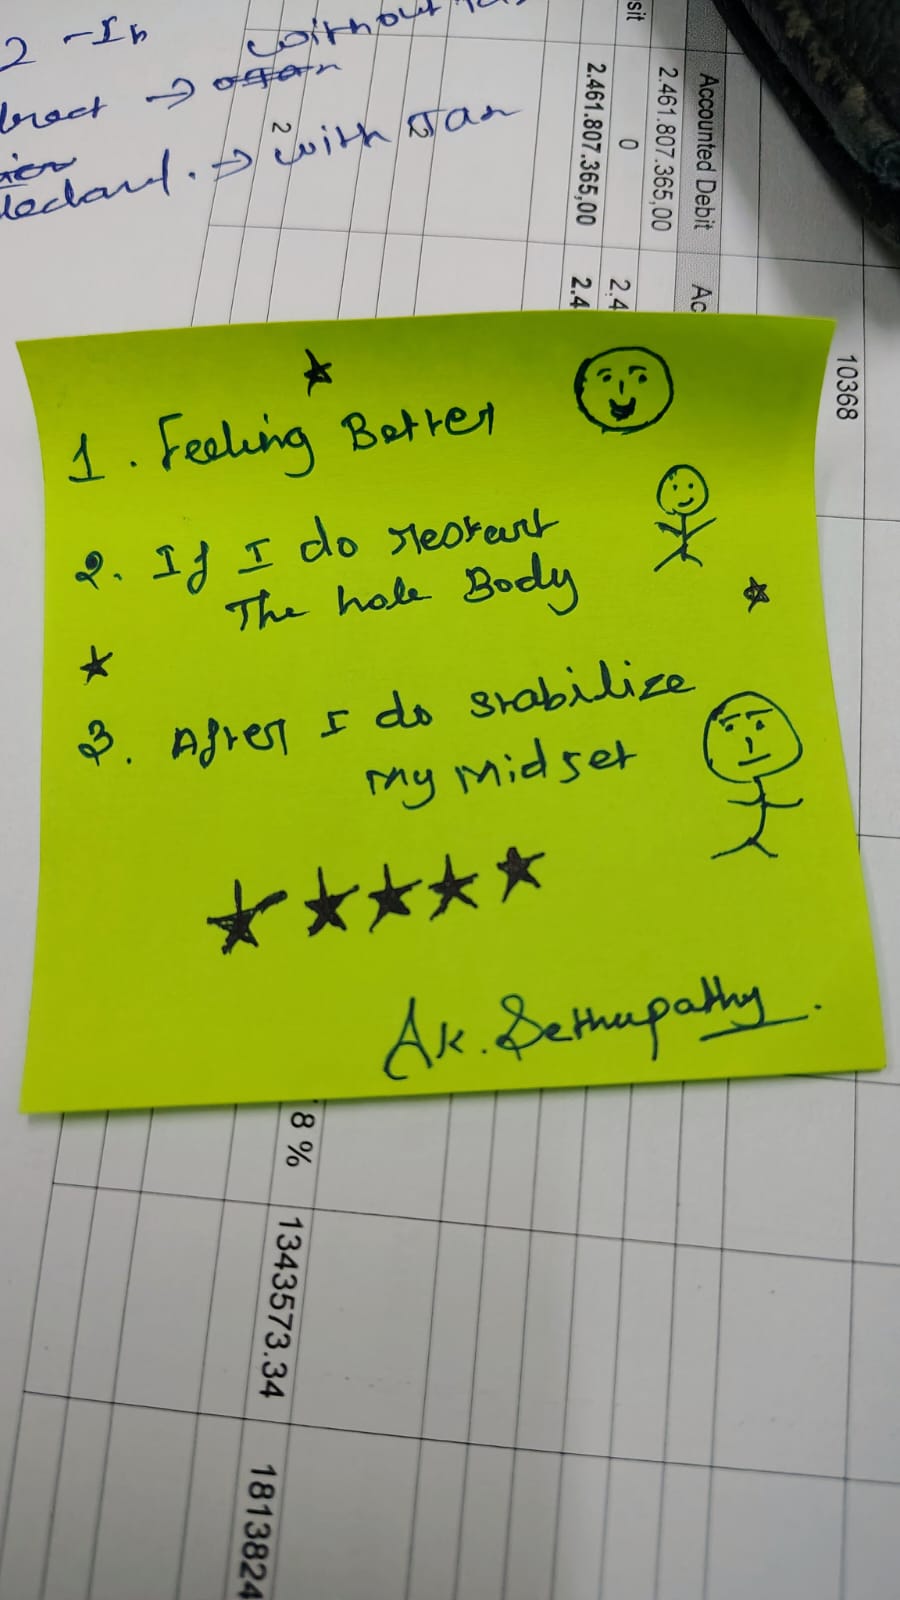 2 - In
without
→
→ with Jan
2
sit
Accounted Debit
Ac
2.461.807.365,00
2.4
0
2.461.807.365,00
2.4
10368
1. Feeling Better
2. If I do restart
The hole Body
3. After I do stabilize
My Midset
Ak. Sethupathy.
8 %
1343573.34
1813824